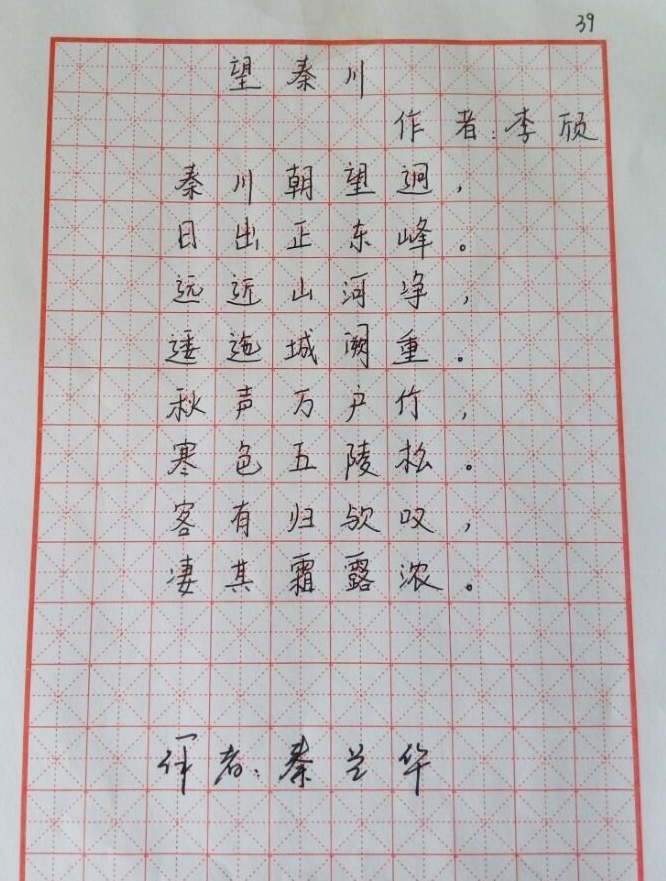 39
望秦川
作者:李颀
秦川朝望迥,
日出正东峰。
远近山河净,
逶迤城阙重。
秋声万户竹,
寒色五陵松。
客有归欤叹,
凄其霜露浓。
作者:秦兰华